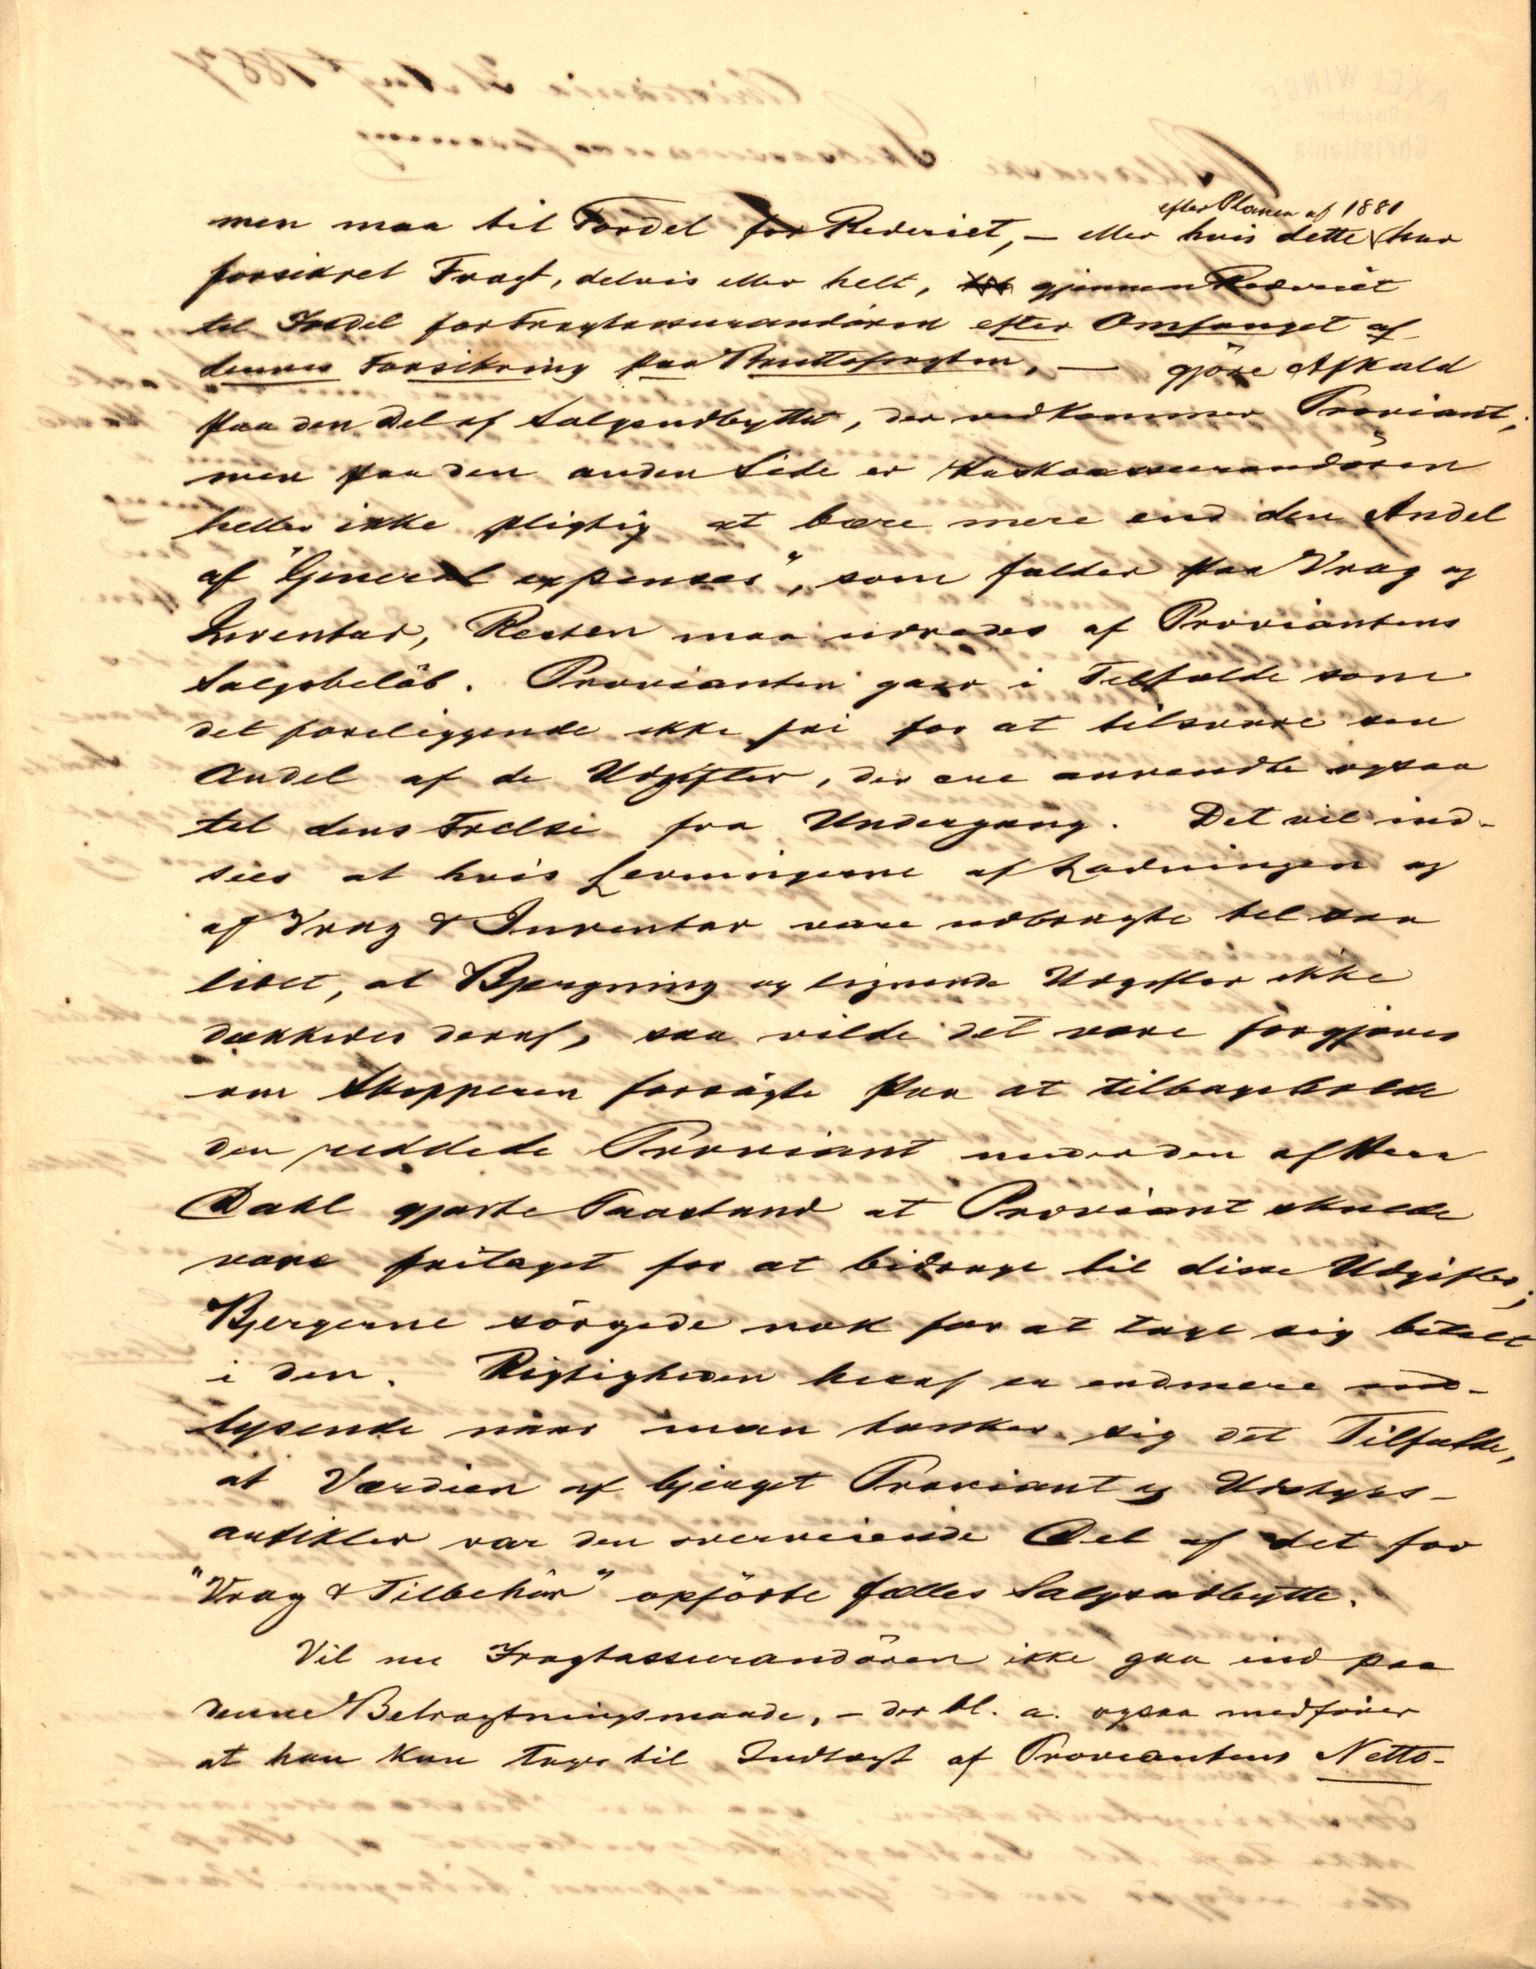 men maa til Fordel for Rederiet, — eller hvis dette efter Planen af 1881 har
forsikret Fragt, delvis eller helt, gjennem Rederiet
til Fordel for Fragtassurandören efter Omfanget af
dennes Forsikring paa Bruttofragten, — gjöre Afkald
paa den Del af Salgsudbyttet, der vedkommer Proviant;
men paa den anden Side er Kaskoassurandören
heller ikke pligtig at bære mere end den Andel
af "General expenses", som falder paa Vrag og
Inventar, Resten maa udredes af Proviantens
Salgsbelöb. Provianten gaar i Tilfælde som
det foreliggende ikke fri for at tilsvare sin
Andel af de Udgifter, der ere anvendte ogsaa
til dens Frelse fra Undergang. Det vil ind-
sees at hvis Levningerne af Ladningen og
af Vrag & Inventar vare udbragte til saa
lidet, at Bjergning og lignende Udgifter ikke
dækkedes deraf, saa vilde det være forgjæves
om Skipperen forsögte paa at tilbageholde
den reddede Proviant under den af Herr
Dahl gjorte Paastand at Proviant skulde
være fritaget for at bidrage til disse Udgifter;
Bjergerne sörgede nok for at tage sig betalt
i den. Rigtigheden heraf er endmere ind-
lysende naar man tænker sig det Tilfælde,
at Værdien af bjerget Proviant og Udstyrs-
artikler var den overveiende Del af det for
"Vrag & Tilbehör" opförte fælles Salgsudbytte.
Vil nu Fragtassurandören ikke gaa ind paa
denne Betragtningsmaade, — der bl. a. ogsaa medförer
at han kun tager til Indtægt af Proviantens Netto-